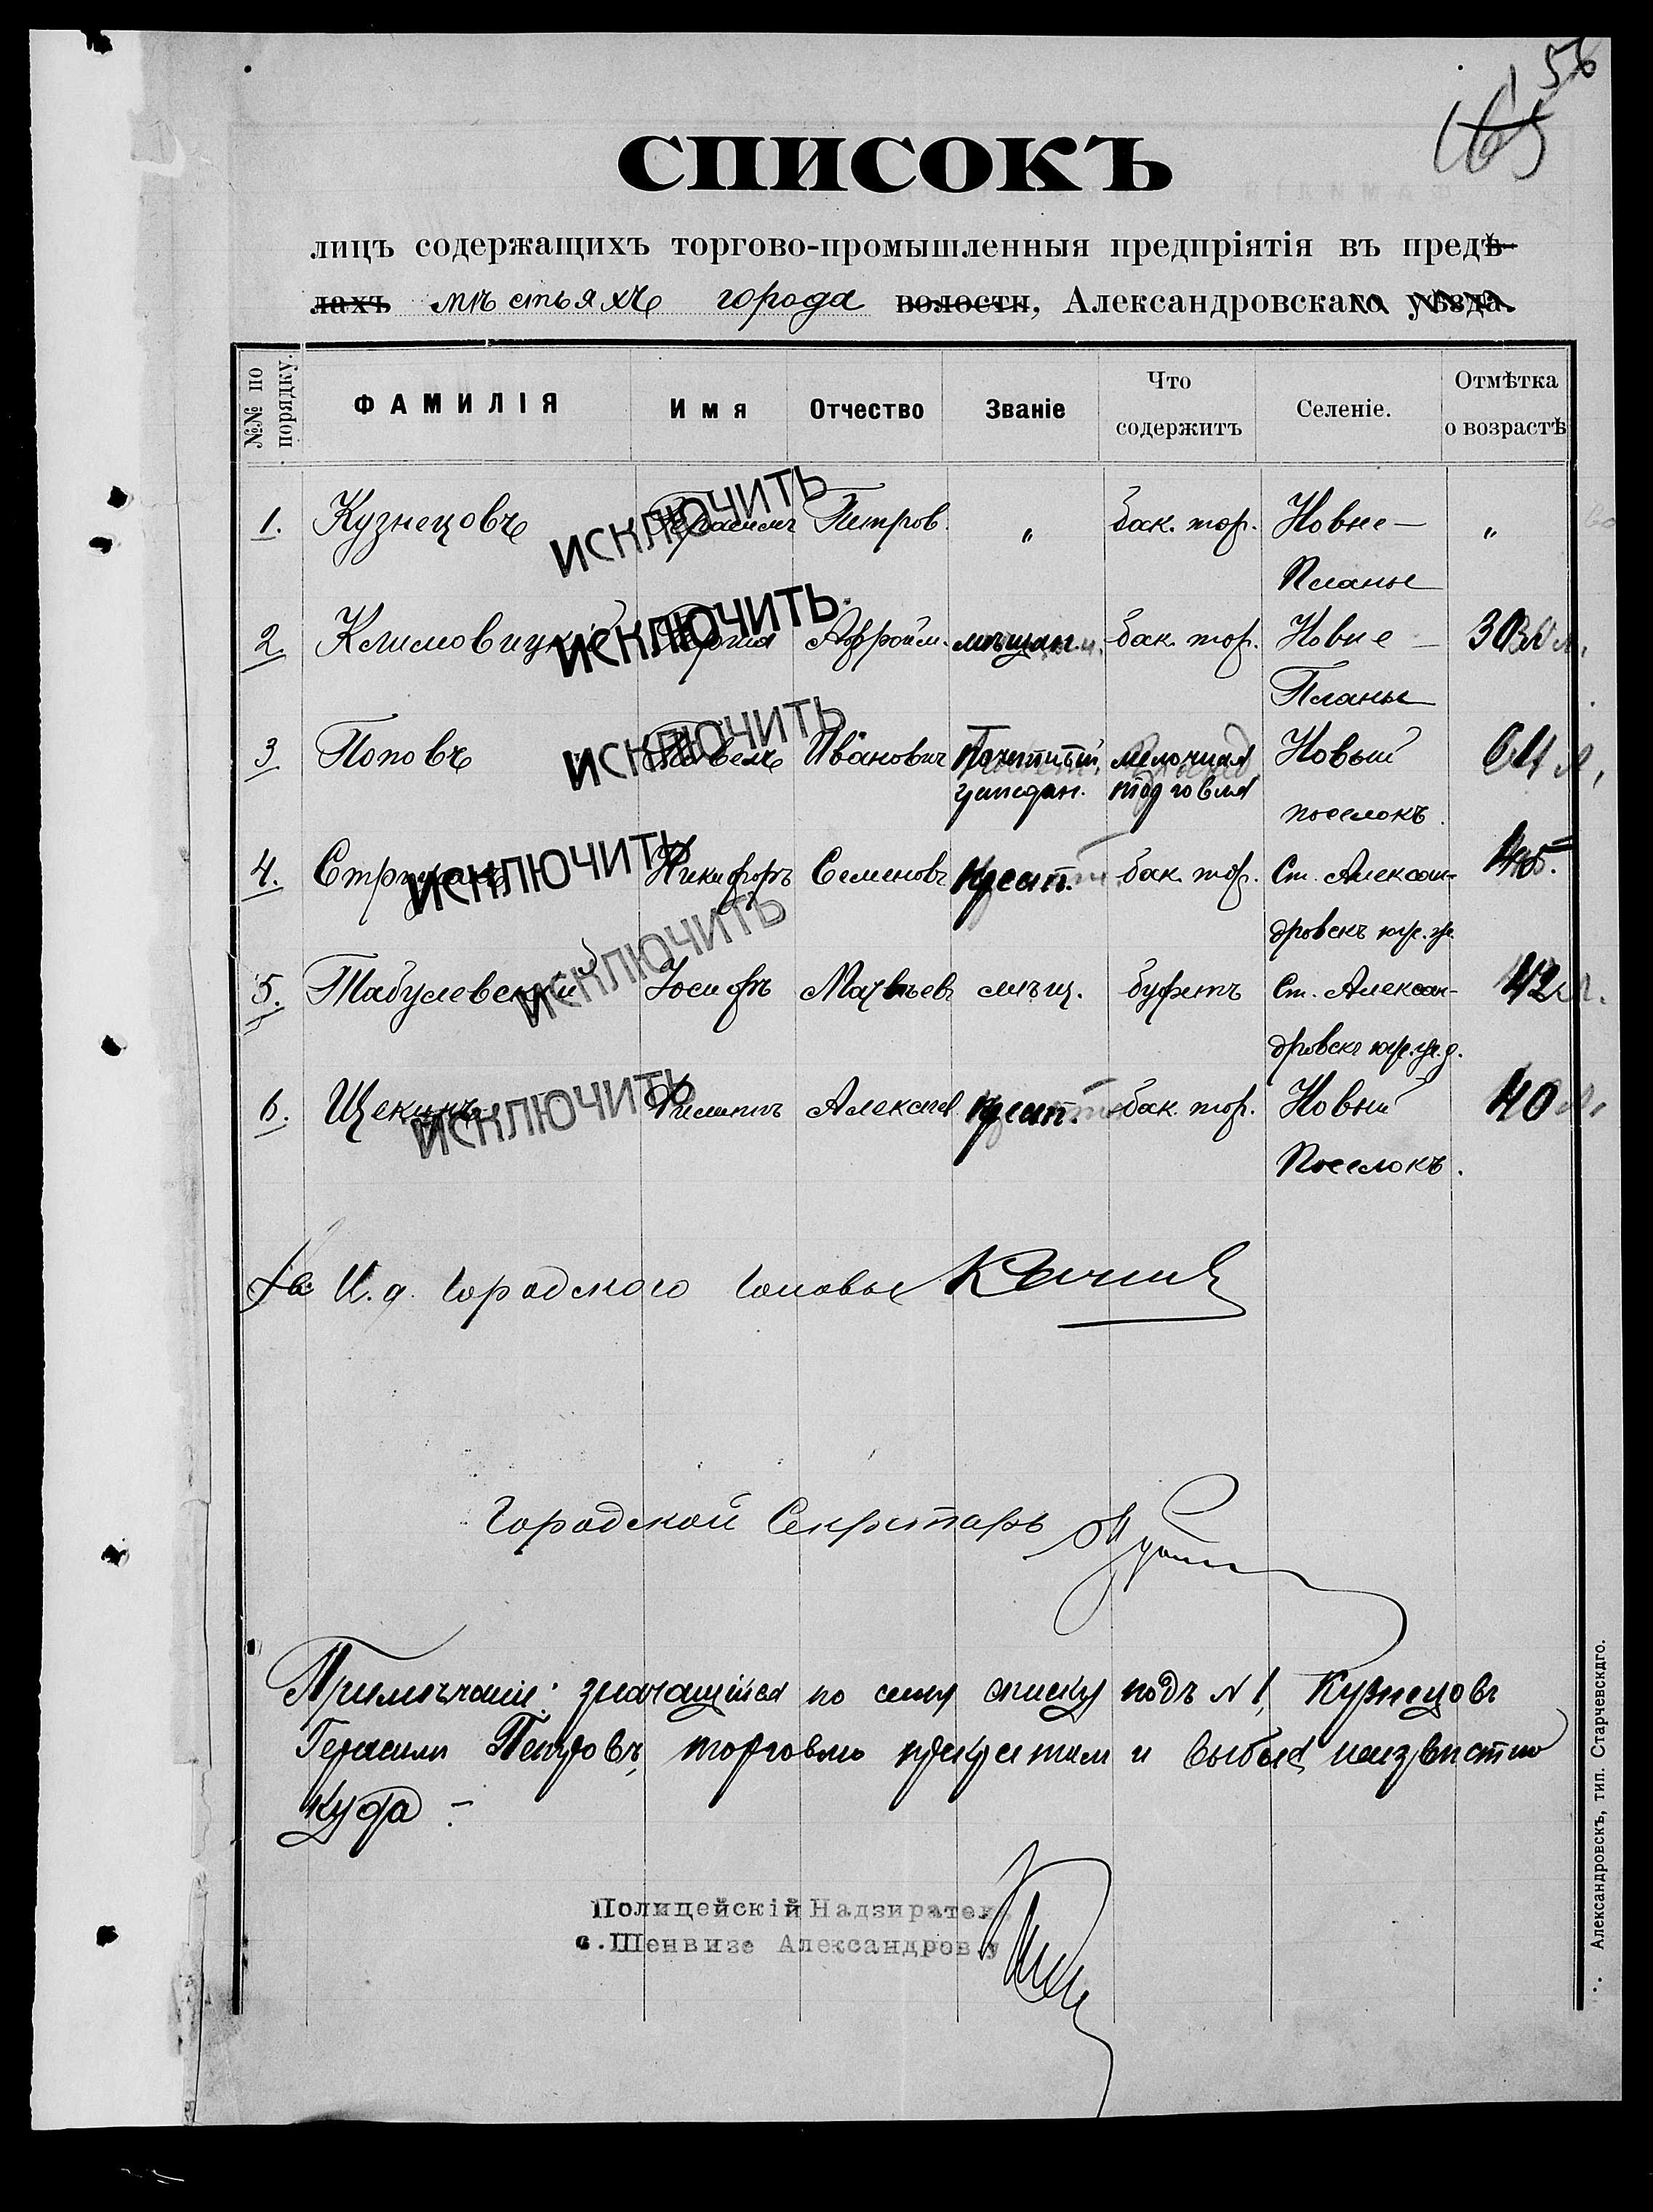 56
165
СПИСОКЪ
лицъ содержащихъ торгово-промышленныя предпріятія въ предѣ-
лахъ мѣстьяхъ города волости, Александровскаго уѣзда.
№№ по порядку. ФАМИЛІЯ Имя Отчество Званіе Что содержитъ Селеніе. Отмѣтка о возрастѣ
1. Кузнецовъ Герасимъ Петров. " бак. тор. Новые — "
ИСКЛЮЧИТЬ
Планы
2 Климовицкій Афройм. мѣщан. бак. тор. Новые — 30
ИСКЛЮЧИТЬ
Планы
3 Поповъ Павелъ Ивановичъ Почетный мелочная Новый 61 л.
ИСКЛЮЧИТЬ
граждан. торговля поселокъ.
4. Никифоръ Семеновъ Крест. бак. тор. Ст. Алексан- 45.
ИСКЛЮЧИТЬ
дровскъ юж.
5. Табулевскій Іосифъ Матвѣевъ мѣщ. буфетъ Ст. Алексан- 42 л.
ИСКЛЮЧИТЬ
дровскъ юж.
6. Щекинъ Филиппъ Алексѣев Крест. бак. тор. Новый 40 л.
ИСКЛЮЧИТЬ
Поселокъ.
За И. д. Городского Головы
Городской Секретарь
Примѣчаніе: значащійся по сему списку подъ №1, Кузнецовъ
Герасим Петровъ, торговлю прекратил и выбылъ неизвѣстно
куда —
Полицейскій Надзиратель
с. Шенвизе Александров. у
Александровскъ, тип. Старчевскаго.